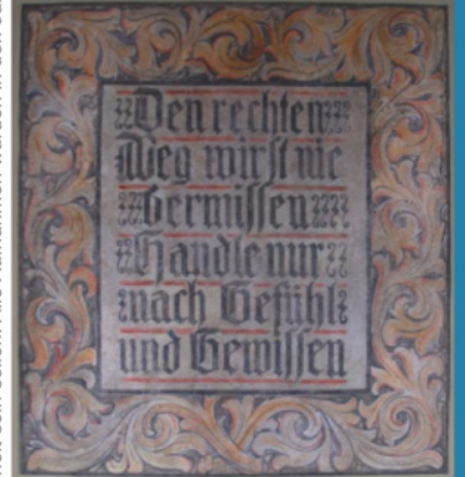 Den rechten
Weg wirst nie
vermissen
Handle nur
nach Gefühl
und Gewissen